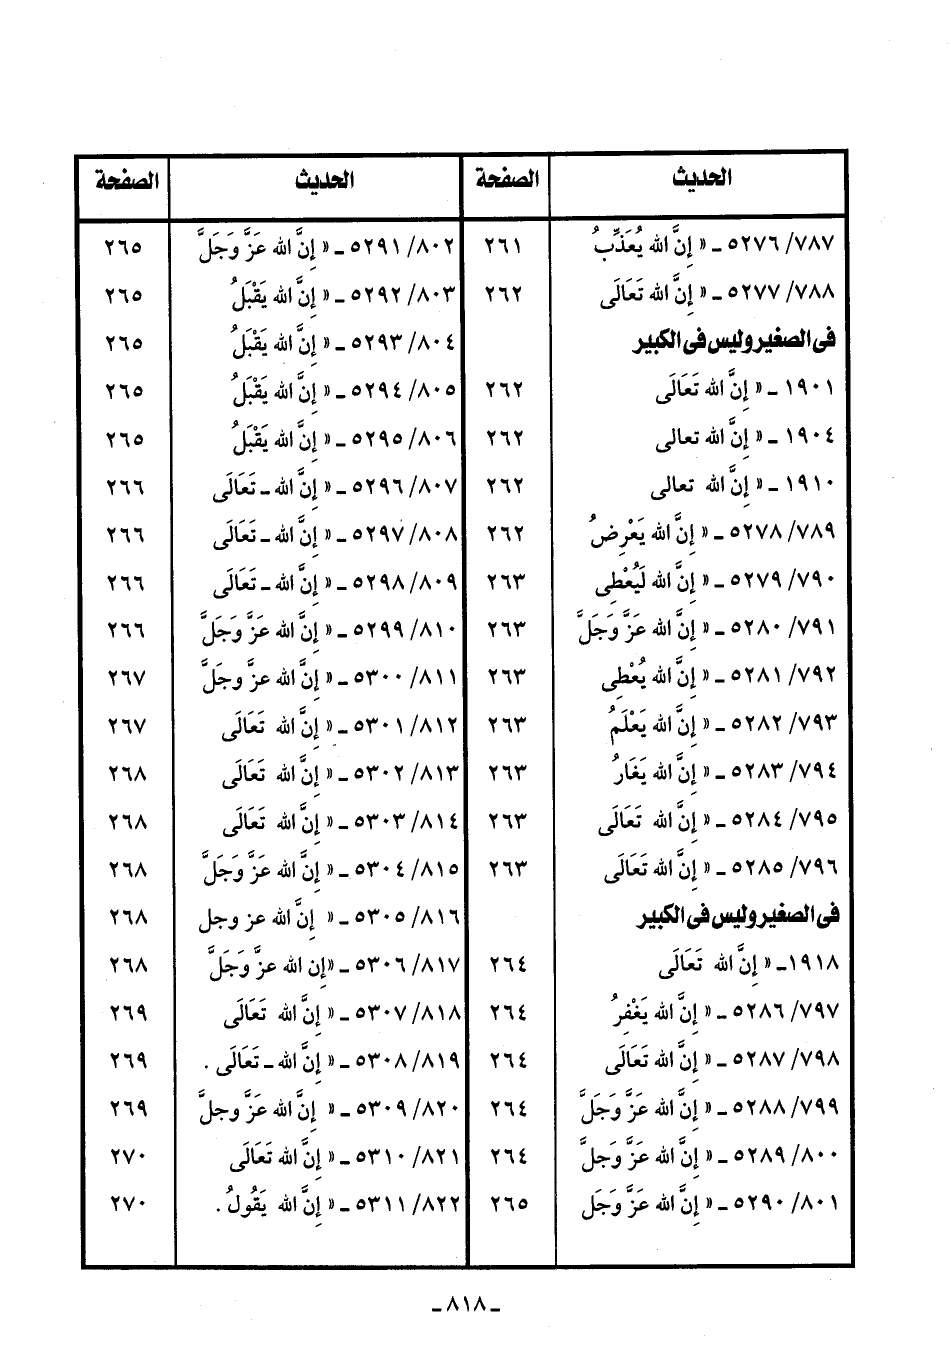 الحديث الصفحة
٥٢٧٦/٧٨٧ ـ « إِنَّ الله يُعَذِّبُ ٢٦١
٥٢٧٧/٧٨٨ ـ « إِنَّ الله تَعَالَى ٢٦٢
فى الصغير وليس فى الكبير
١٩٠١ ـ « إِنَّ الله تَعَالَى ٢٦٢
١٩٠٤ ـ « إِنَّ الله تعالى ٢٦٢
١٩١٠ ـ « إِنَّ الله تعالى ٢٦٢
٥٢٧٨/٧٨٩ ـ « إِنَّ الله يَعْرِضُ ٢٦٢
٥٢٧٩/٧٩٠ ـ « إِنَّ الله لَيُعْطِى ٢٦٣
٥٢٨٠/٧٩١ ـ « إِنَّ الله عَزَّ وَجَلَّ ٢٦٣
٥٢٨١/٧٩٢ ـ « إِنَّ الله يُعْطِى ٢٦٣
٥٢٨٢/٧٩٣ ـ « إِنَّ الله يَعْلَمُ ٢٦٣
٥٢٨٣/٧٩٤ ـ « إِنَّ الله يَغَارُ ٢٦٣
٥٢٨٤/٧٩٥ ـ « إِنَّ الله تَعَالَى ٢٦٣
٥٢٨٥/٧٩٦ ـ « إِنَّ الله تَعَالَى ٢٦٣
فى الصغير وليس فى الكبير
١٩١٨ـ « إِنَّ الله تَعَالَى ٢٦٤
٥٢٨٦/٧٩٧ ـ « إِنَّ الله يَغْفِرُ ٢٦٤
٥٢٨٧/٧٩٨ ـ « إِنَّ الله تَعَالَى ٢٦٤
٥٢٨٨/٧٩٩ ـ « إِنَّ الله عَزَّ وَجَلَّ ٢٦٤
٥٢٨٩/٨٠٠ ـ « إِنَّ الله عَزَّ وَجلَّ ٢٦٤
٥٢٩٠/٨٠١ ـ « إِنَّ الله عَزَّ وَجَل ٢٦٥
الحديث الصفحة
٥٢٩١/٨٠٢ ـ « إِنَّ الله عَزَّ وَجَلَّ ٢٦٥
٥٢٩٢/٨٠٣ ـ « إِنَّ الله يَقْبَلُ ٢٦٥
٥٢٩٣/٨٠٤ ـ « إِنَّ الله يَقْبَلُ ٢٦٥
٥٢٩٤/٨٠٥ ـ « إِنَّ الله يَقْبَلُ ٢٦٥
٥٢٩٥/٨٠٦ ـ « إِنَّ الله يَقْبَلُ ٢٦٥
٥٢٩٦/٨٠٧ ـ « إِنَّ الله ـ تَعَالَى ٢٦٦
٥٢٩٧/٨٠٨ ـ « إِنَّ الله ـ تَعَالَى ٢٦٦
٥٢٩٨/٨٠٩ ـ « إِنَّ الله ـ تَعَالَى ٢٦٦
٥٢٩٩/٨١٠ ـ « إِنَّ الله عَزَّ وَجَلَّ ٢٦٦
٥٣٠٠/٨١١ ـ « إِنَّ الله عزَّ وجَلَّ ٢٦٧
٥٣٠١/٨١٢ ـ « إِنَّ الله تَعَالَى ٢٦٧
٥٣٠٢/٨١٣ ـ « إِنَّ الله تَعَالَى ٢٦٨
٥٣٠٣/٨١٤ ـ « إِنَّ الله تَعَالَى ٢٦٨
٥٣٠٤/٨١٥ ـ « إِنَّ الله عَزَّ وَجَلَّ ٢٦٨
٥٣٠٥/٨١٦ ـ « إِنَّ الله عز وجل ٢٦٨
٥٣٠٦/٨١٧ ـ «إِن الله عزَّ وَجَلَّ ٢٦٨
٥٣٠٧/٨١٨ ـ « إِنَّ الله تَعَالَى ٢٦٩
٥٣٠٨/٨١٩ ـ « إِنَّ الله ـ تَعَالَى . ٢٦٩
٥٣٠٩/٨٢٠ ـ « إِنَّ الله عَزَّ وجلَّ ٢٦٩
٥٣١٠/٨٢١ ـ « إِنَّ الله تَعَالَى ٢٧٠
٥٣١١/٨٢٢ ـ « إِنَّ الله يَقُولُ . ٢٧٠
ـ ٨١٨ ـ